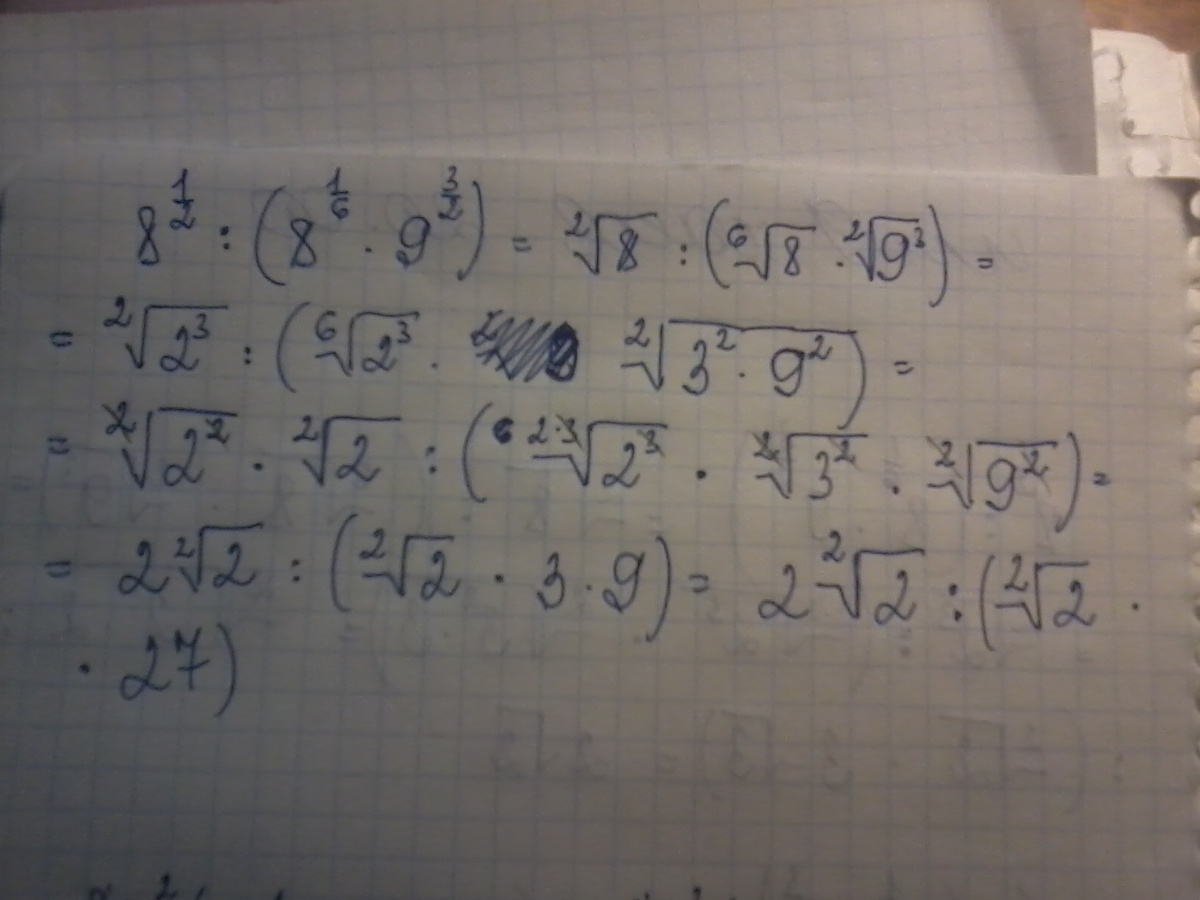 8^{1/2} : (8^{1/6} · 9^{3/2}) = ²√8 : (⁶√8 · ²√9³) =
= ²√2³ : (⁶√2³ · ²√(3² · 9²)) =
= ²√2² · ²√2 : (⁶ ²·³√2³ · ²√3² · ²√9²) =
= 2 ²√2 : (²√2 · 3 · 9) = 2 ²√2 : (²√2 ·
· 27)